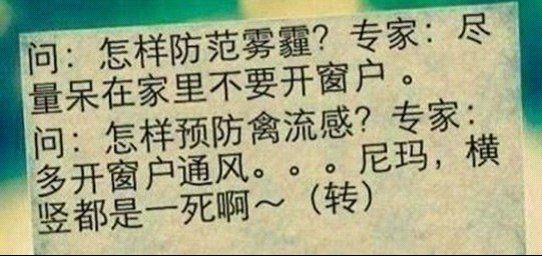 问：怎样防范雾霾？专家：尽
量呆在家里不要开窗户。
问：怎样预防禽流感？专家：
多开窗户通风。。。尼玛，横
竖都是一死啊～（转）